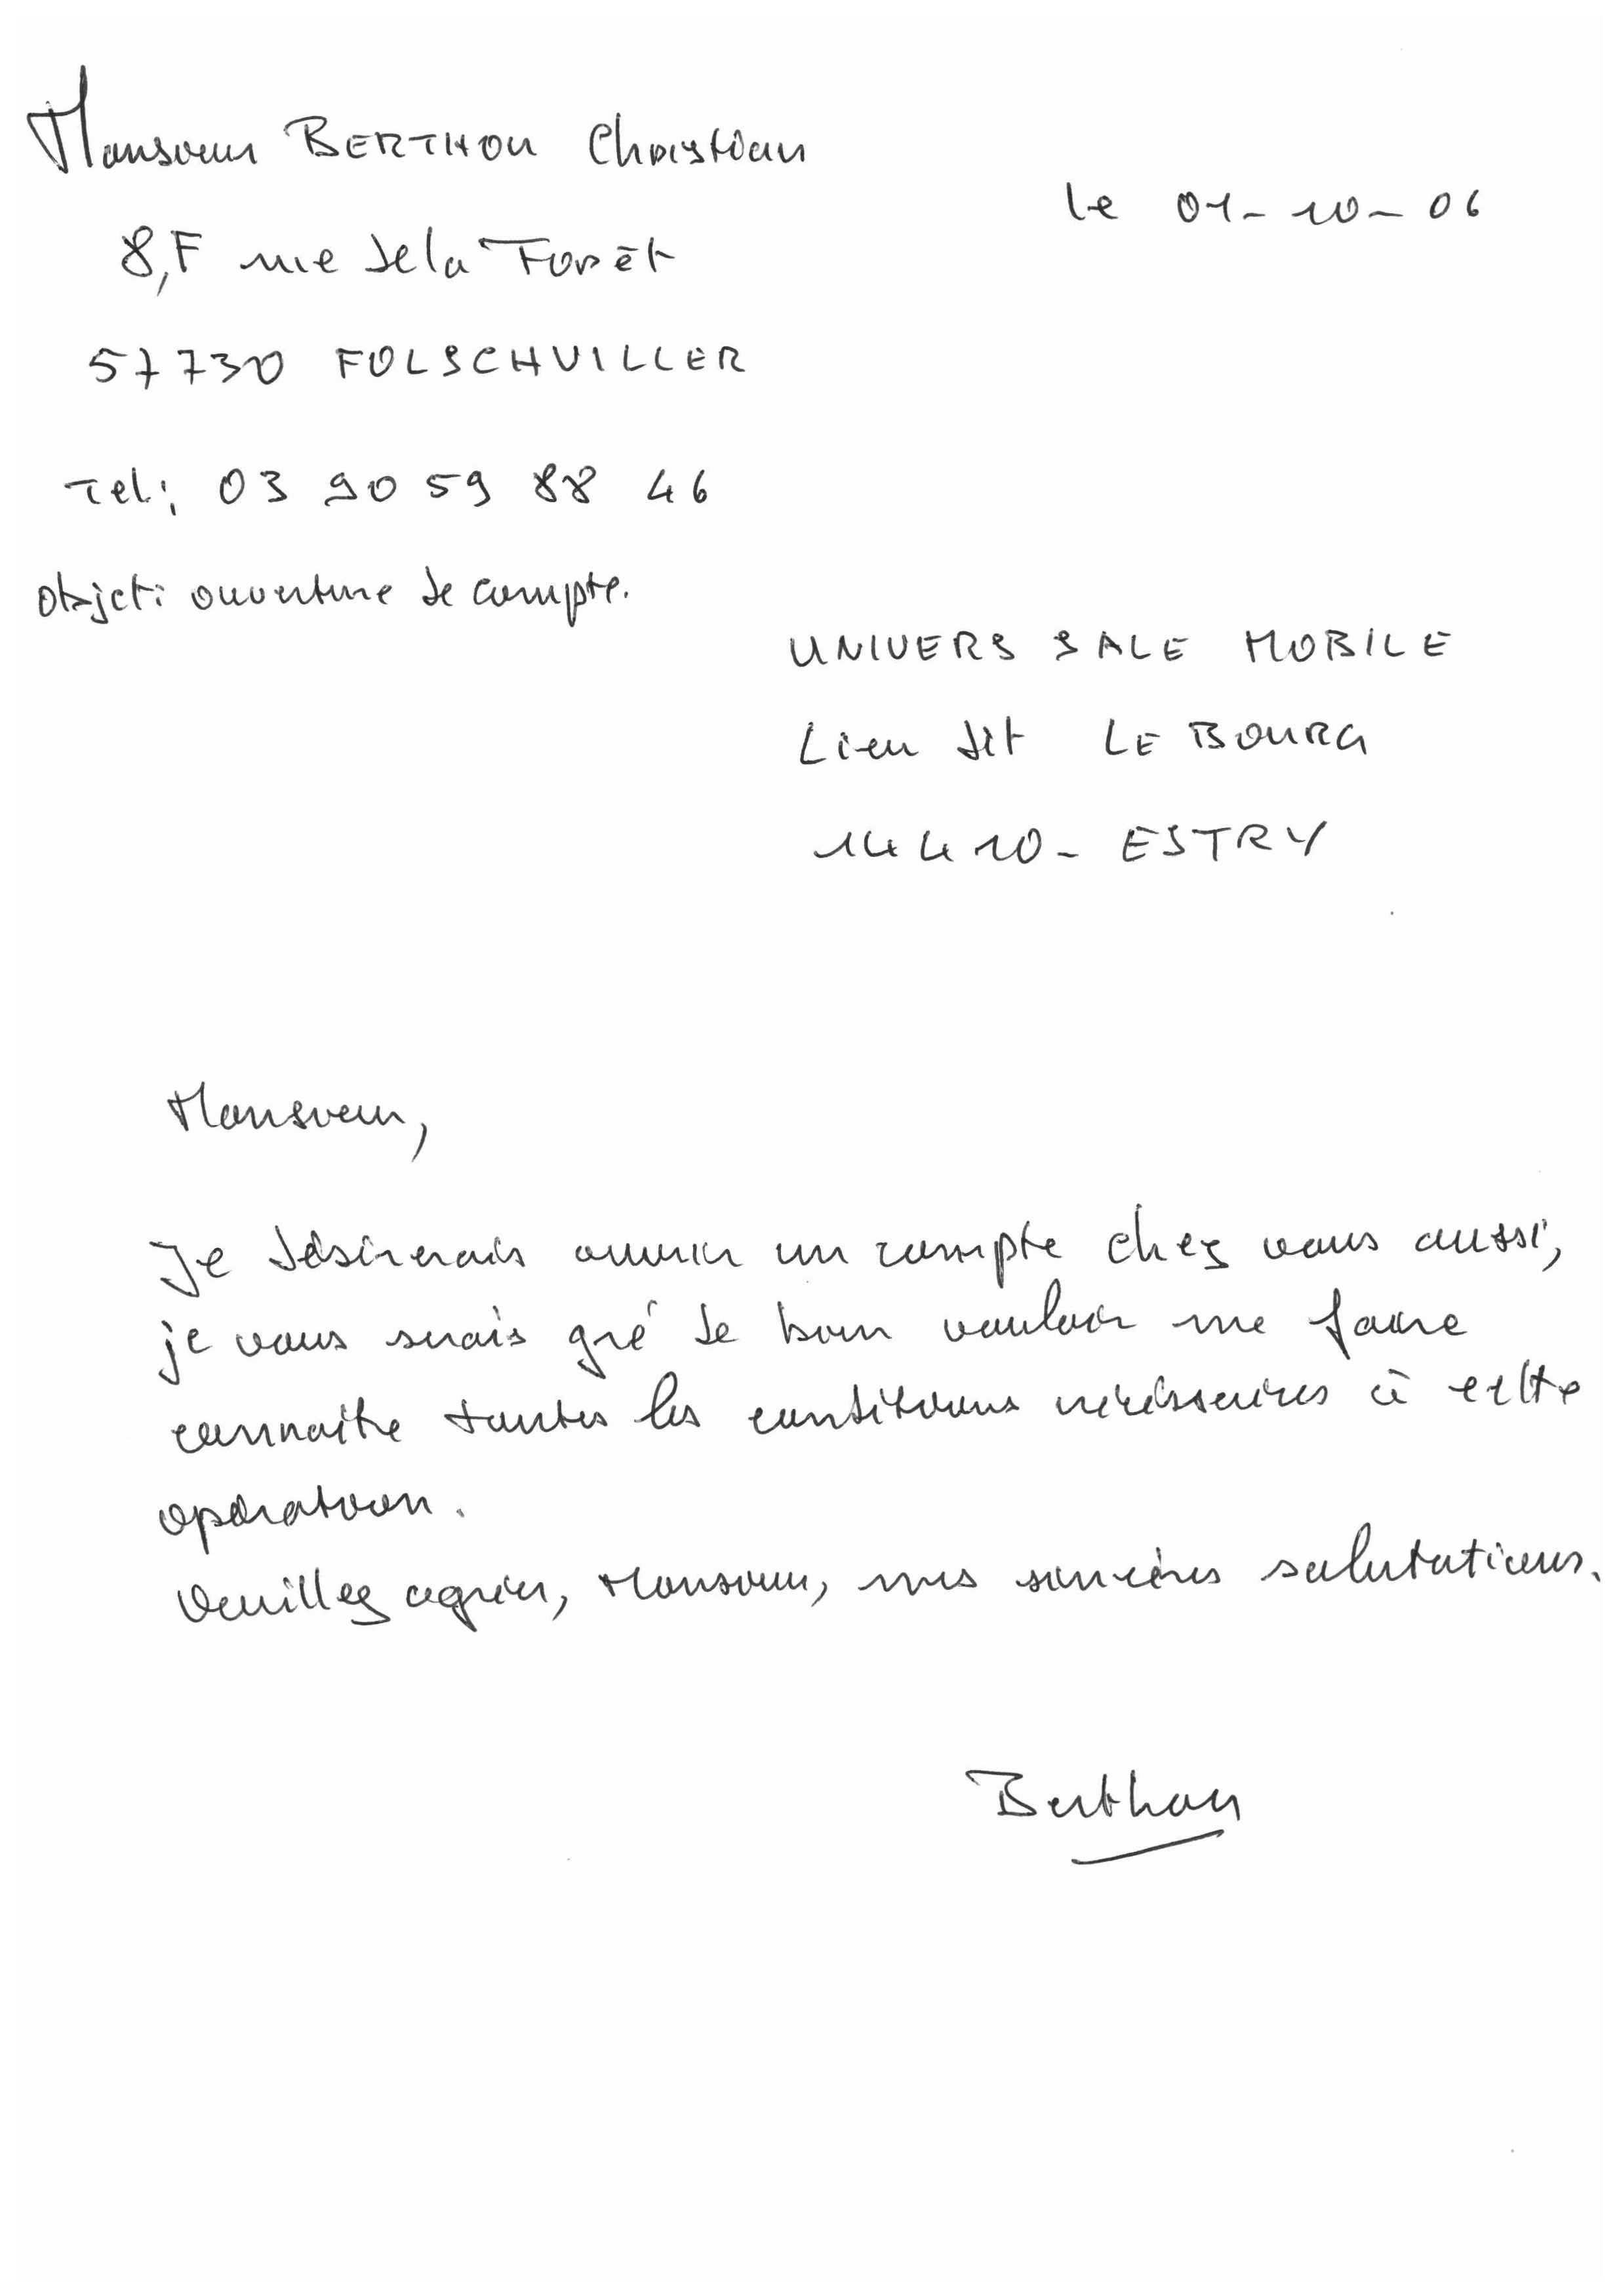 Monsieur BERTHOU Christian
le 01-10-06
8,F rue de la Forêt
57730 FOLSCHVILLER
Tel: 03 90 59 88 46
Objet: ouverture de compte.
UNIVERS SALE MOBILE
Lieu dit LE BOURG
14410- ESTRY
Monsieur,
Je désirerais ouvrir un compte chez vous aussi,
je vous serais gré de bien vouloir me faire
connaître toutes les conditions nécéssaires à cette
opération.
Veuillez agréer, Monsieur, mes sincères salutations.
Berthou